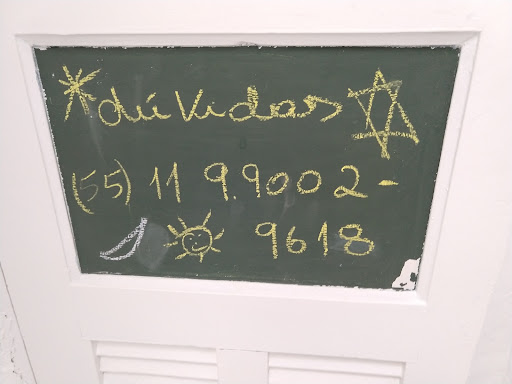 dúvidas
(55) 11 9.9002-
9618